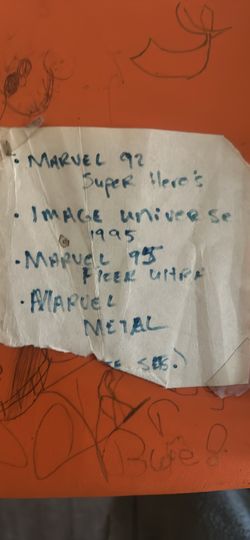 • MARVEL 92
Super Hero's
• IMAGE UNIVERSE
1995
• MARVEL 95
FLEER ULTRA
• MARVEL
METAL